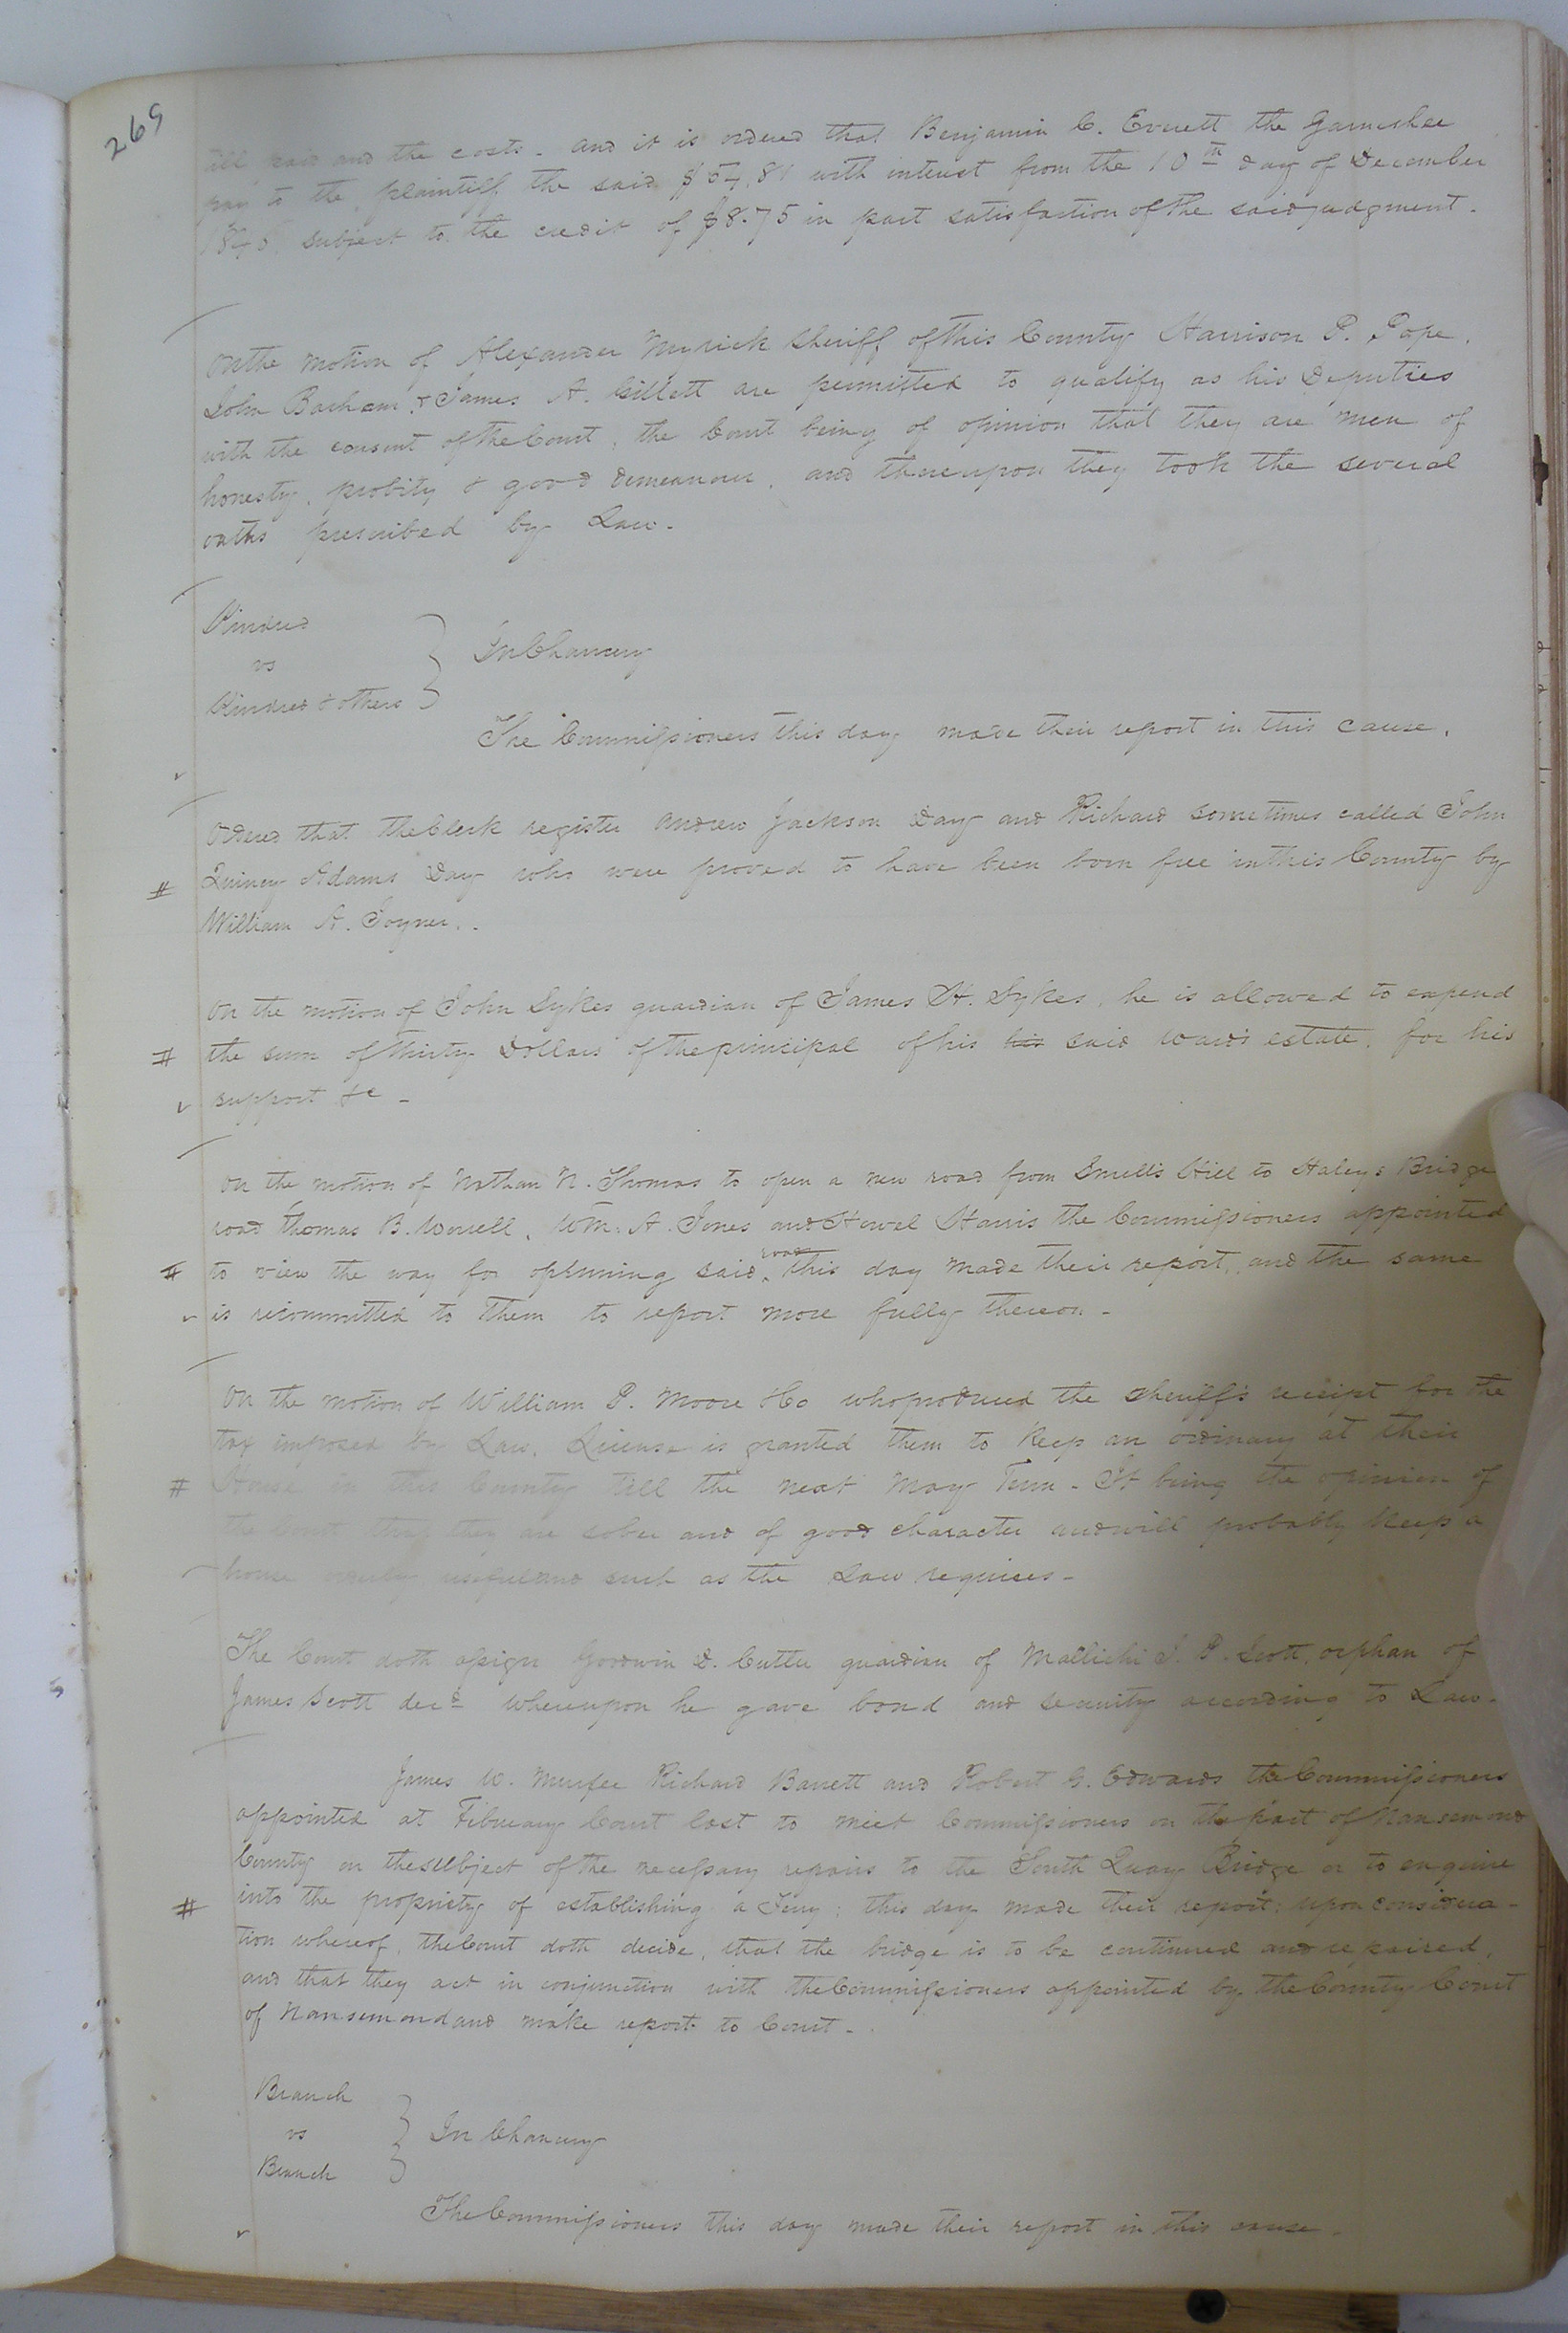 269
till paid and the costs. and it is ordered that Benjamin C. Everett the Garnishee
pay to the plaintiff the said $57.81 with interest from the 10th day of December
subject to the credit of $8.75 in part satisfaction of the said judgment.
On the motion of Alexander Myrick Sheriff of this County Harrison P. Pope,
John Barham, & James A. Gillett are permitted to qualify as his Deputies
with the consent of the Court, the Court being of opinion that they are men of
honesty, probity & good demeanour, and thereupon they took the several
oaths prescribed by Law.
Kindred
vs
Kindred & others } In Chancery
The Commissioners this day made their report in this cause.
Ordered that the Clerk register Andrew Jackson Day and Richard sometimes called John
# Quincy Adams Day who were proved to have been born free in this County by
William A. Joyner.
On the motion of John Sykes guardian of James H. Sykes, he is allowed to expend
# the sum of thirty Dollars of the principal of his his said wards estate, for his
support &c -
On the motion of Nathan N. Thomas to open a new road from Smells Hill to Haleys Bridge
road Thomas B. Worrell, Wm. A. Jones and Howel Harris the Commissioners appointed
# to view the way for opkning said road this day made their report, and the same
is recommitted to them to report more fully thereon -
On the motion of William P. Moore & Co who produced the Sheriff's receipt for the
tax imposed by Law, License is granted them to keep an ordinary at their
# House in this County till the next May Term - It being the opinion of
the Court that they are sober and of good character and will probably keep a
house orderly useful and such as the Law requires -
The Court doth assign Goodwin D. Cutler guardian of Mallichi J. P. Scott, orphan of
James Scott decd whereupon he gave bond and security according to Law.
James W. Murfee Richard Barrett and Robert G. Edwards the Commissioners
appointed at February Court last to meet Commissioners on the part of Nansemond
County on the subject of the necessary repairs to the South Quay Bridge or to enquire
# into the propriety of establishing a Ferry; this day made their report; upon considera-
tion whereof, the Court doth decide, that the bridge is to be continued and repaired,
and that they act in conjunction with the Commissioners appointed by the County Court
of Nansemond and make report to Court -
Branch
vs
Branch } In Chancery
The Commissioners this day made their report in this cause -